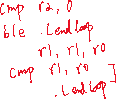 cmp r2, 0
ble .Lendloop
r1, r1, r0
cmp r1, r0
.Lendloop